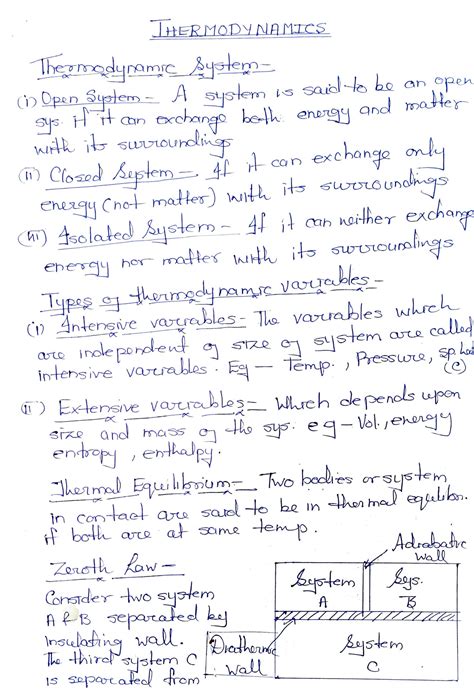 THERMODYNAMICS
Thermodynamic System -
(i) Open System - A system is said to be an open
sys. if it can exchange both energy and matter
with its surroundings
(ii) Closed System - If it can exchange only
energy (not matter) with its surroundings
(iii) Isolated System - If it can neither exchange
energy nor matter with its surroundings
Types of thermodynamic variables -
(i) Intensive variables - The variables which
are independent of size of system are called
intensive variables. Eg - Temp., Pressure, sp. heat
(c)
(ii) Extensive variables - Which depends upon
size and mass of the sys. eg - Vol., energy
entropy, enthalpy.
Thermal Equilibrium - Two bodies or system
in contact are said to be in thermal equlibr.
if both are at same temp.
Zeroth Law -
Consider two system
A & B separated by
insulating wall.
The third system C
is separated from
Adiabatic
wall
System
A
Sys.
B
Diathermic
wall
System
C